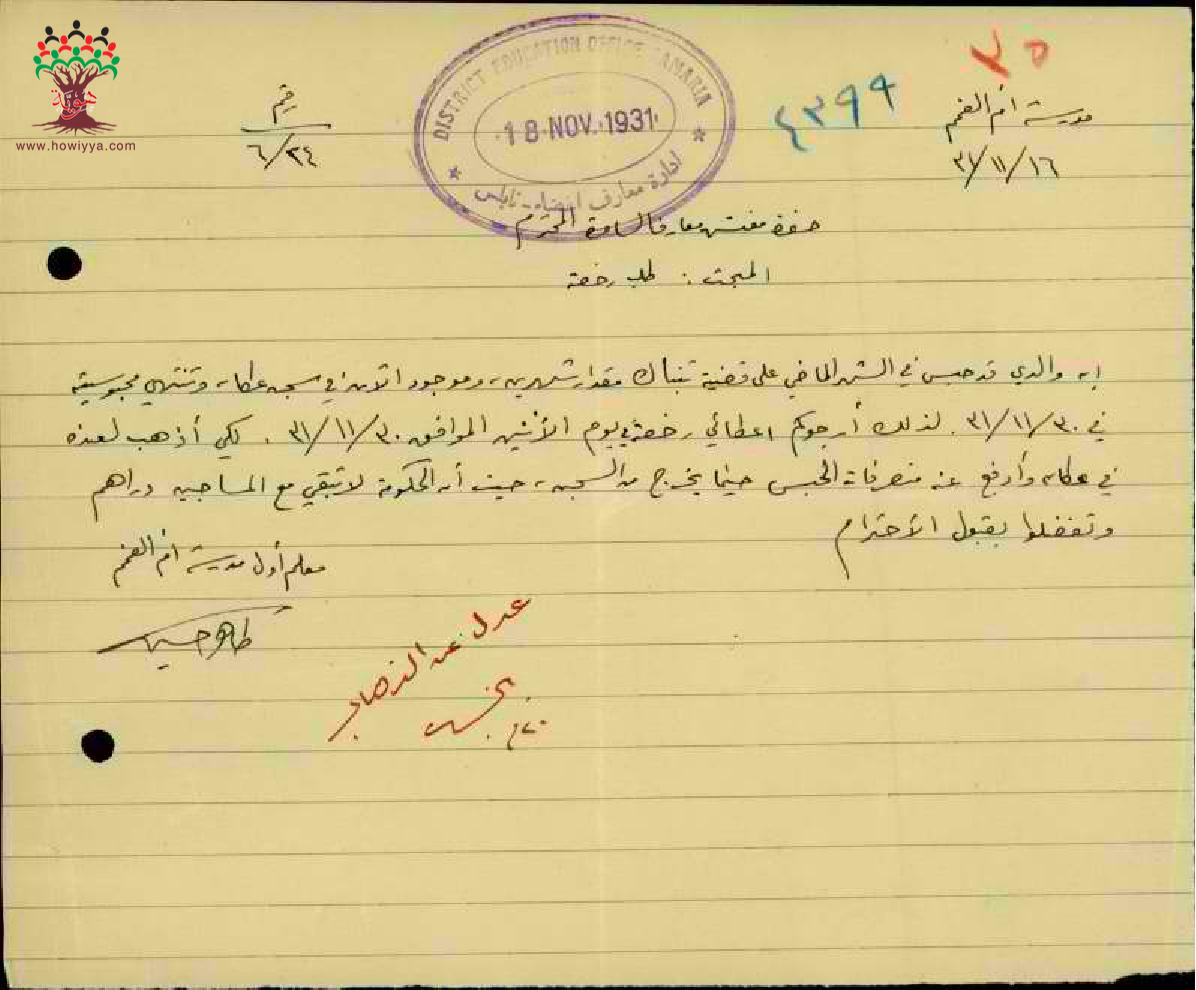 هوية
www.howiyya.com
DISTRICT EDUCATION OFFICE SAMARIA
18 NOV. 1931
ادارة معارف نابلس
٢٥
٤٣٩٩
مدرسة ام الفحم
٣١/١١/١٦
رقم
٦/٢٤
حضرة مفتش معارف السامرة المحترم
المبحث : طلب رخصة
إن والدي قد حبس في الشهر الماضي على قضية تنباك مقدار شهرين، وموجود الآن في سجن عكا، وتنتهي محبوسيته
في ٣١/١١/٣٠. لذلك أرجوكم اعطائي رخصة في يوم الأثنين الموافق ٣١/١١/٣٠. لكي أذهب لعنده
في عكا، وأدفع عنه متصرفات الحبس حينما يخرج من السجن، حيث أن الحكومة لا تبقي مع المساجين دراهم
وتفضلوا بقبول الأحترام
معلم أول مدرسة ام الفحم
طاهر حسين
عدل عن الذهاب